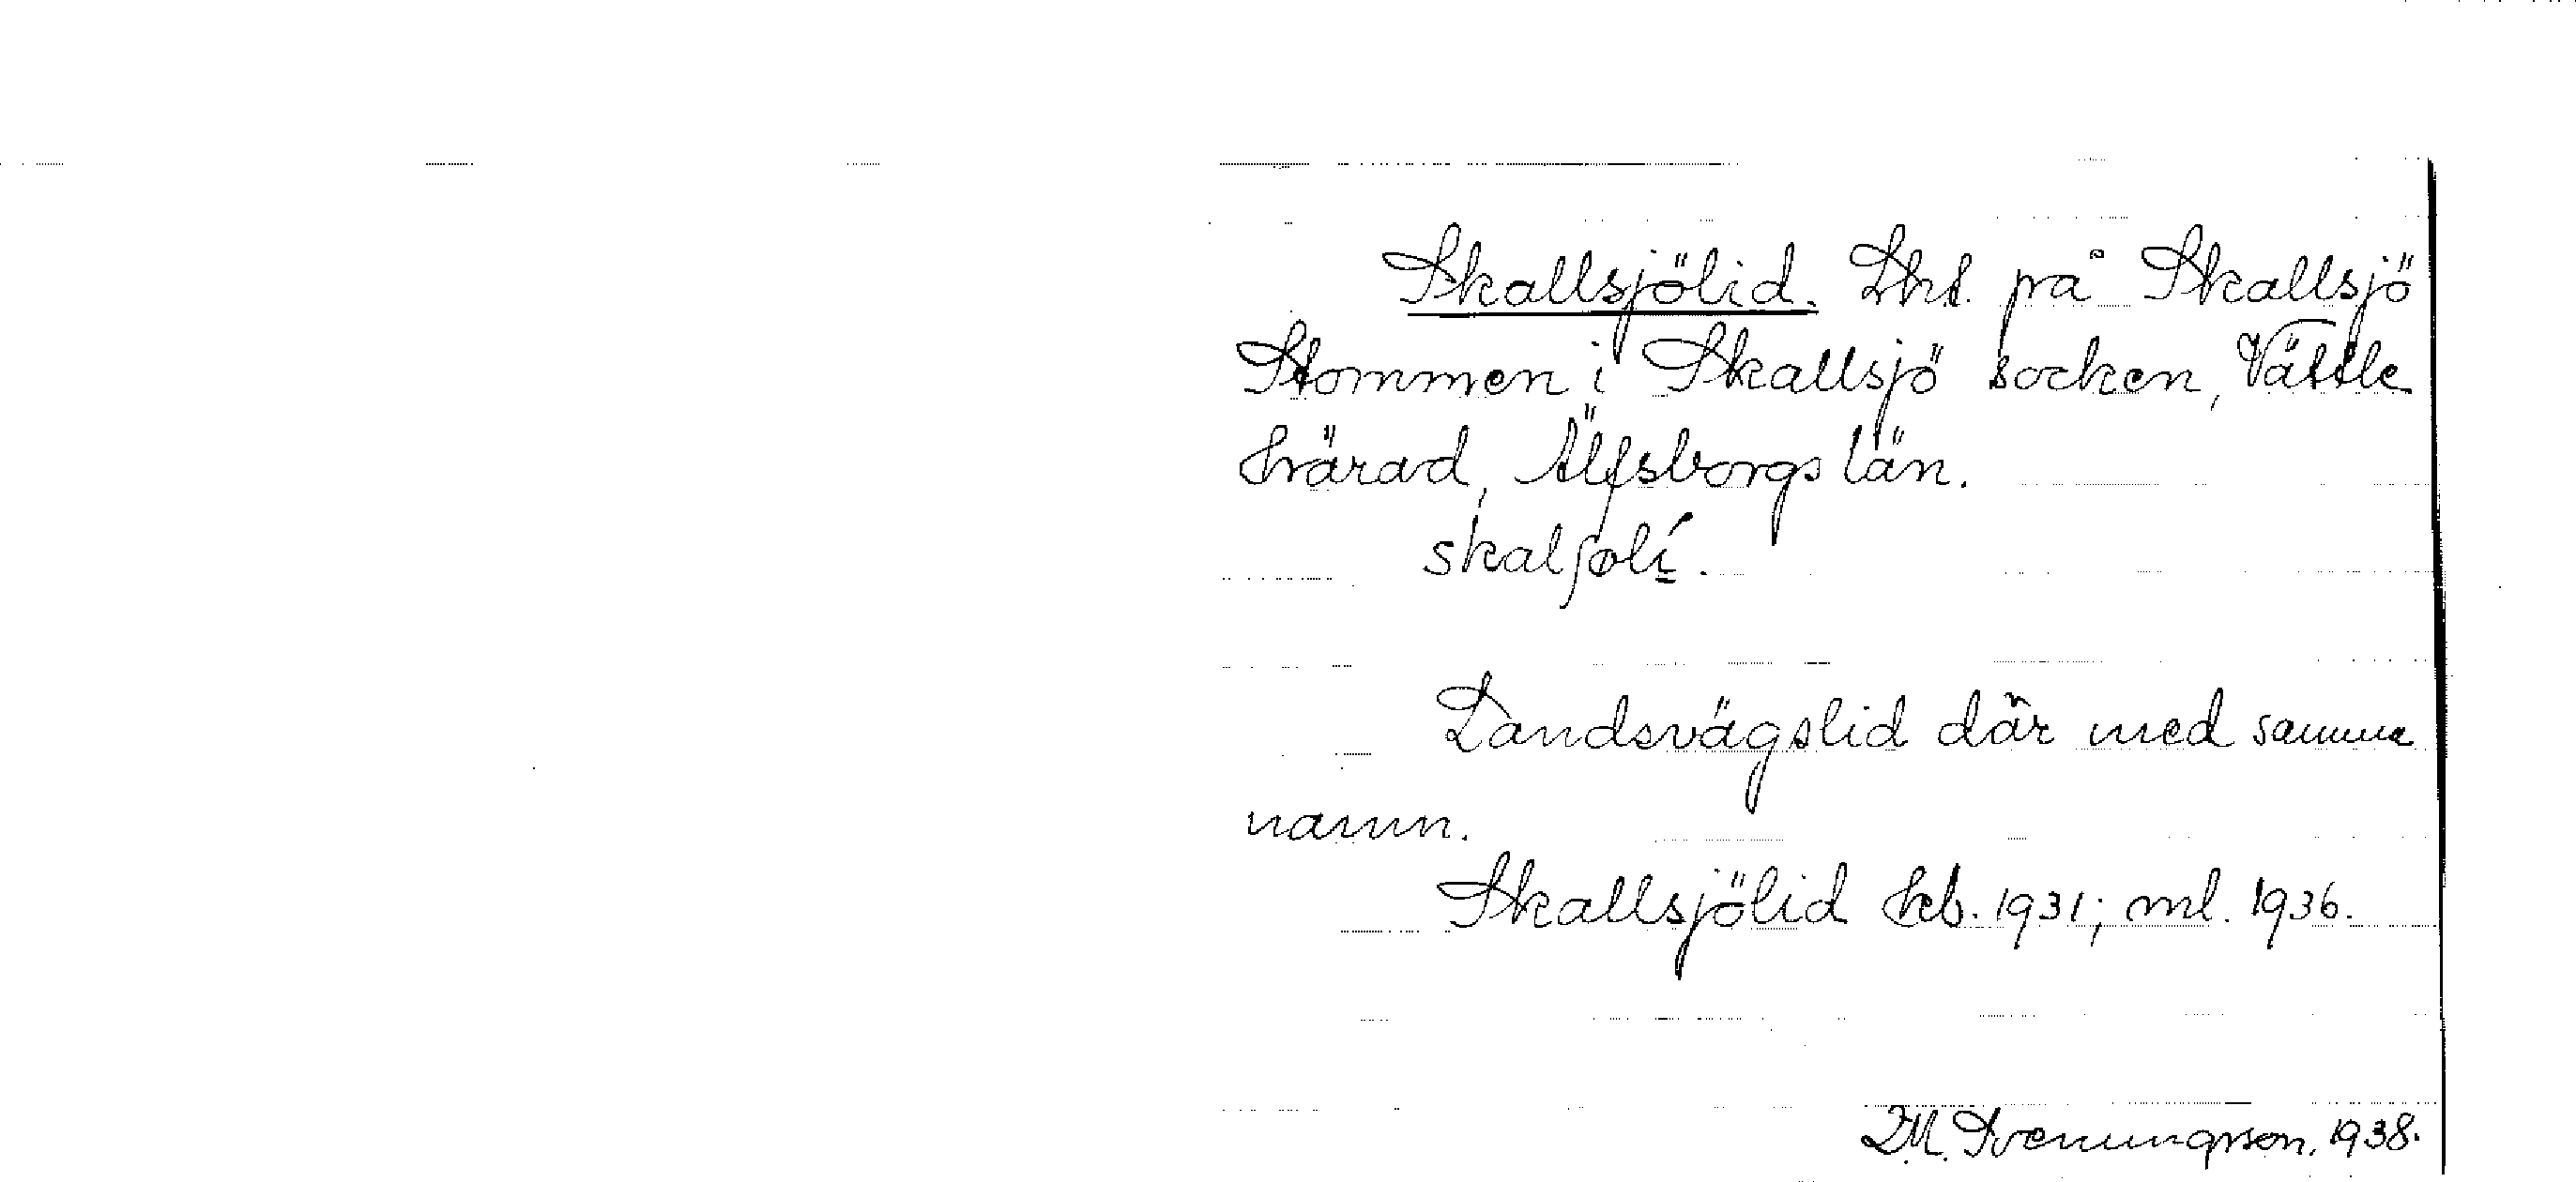 Skallsjölid. Lht. på Skallsjö
Stommen i Skallsjö socken, Vättle
härad, Älfsborgs län.
skalʃolí.
Landsvägslid där med samma
namn.
Skallsjölid hcb. 1931; ml. 1936.
L.M. Svenungsson. 1938.